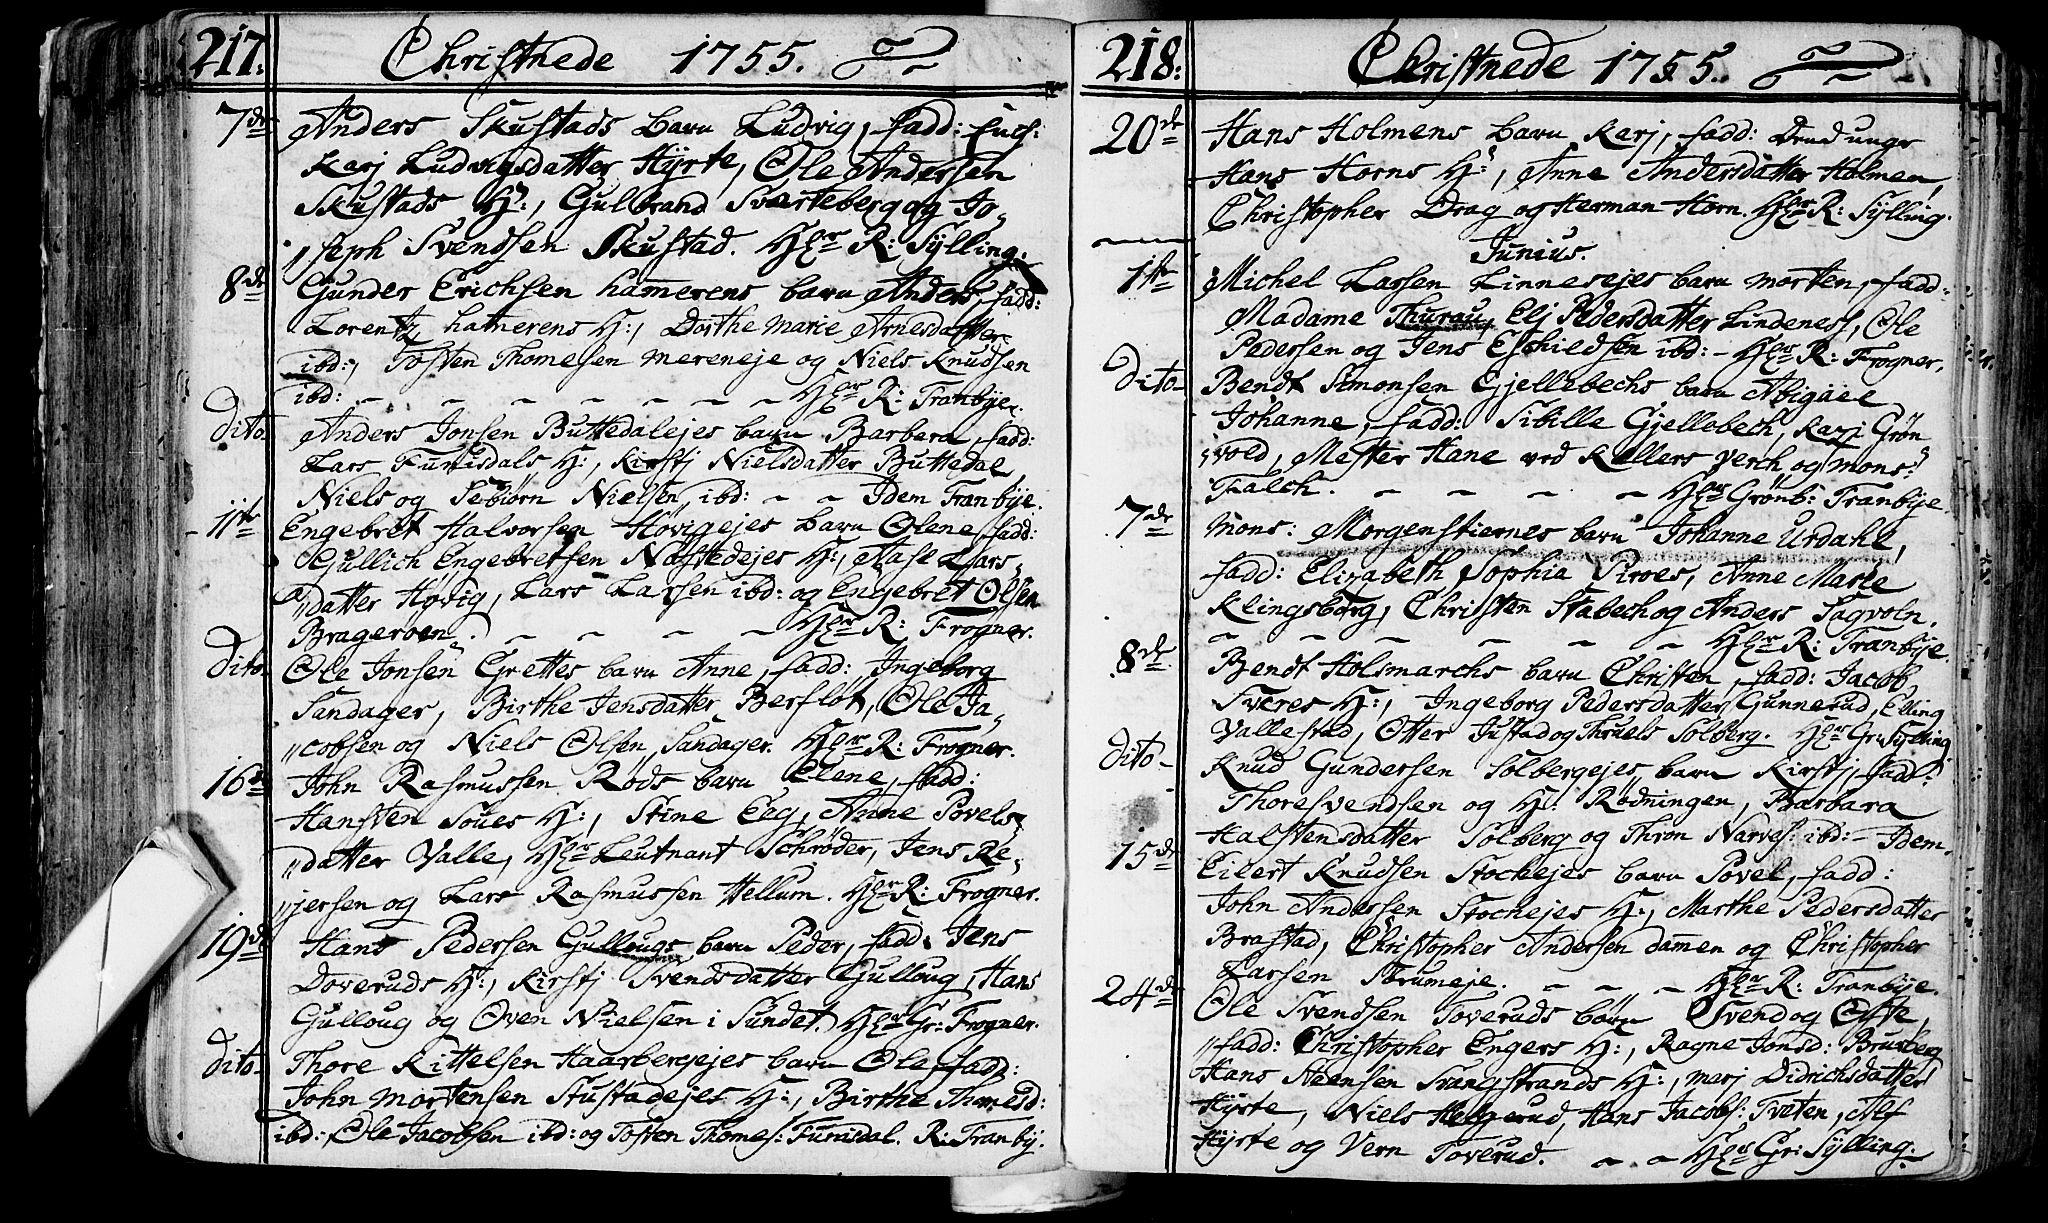 217. Christnede 1755.
7de Anders Skustads barn Ludvig, fadd:
Karj Ludvigsdatter Hÿrte, Ole Andersen
Skustads H:, Gulbrand Sverteberg og Jo-
"seph Svendsen Skustad. Hgr R: Sÿlling.
8de Gunder Erichsen hamerens barn Anders, fadd:
Lorentz hamerens H:, Dorthe Marie Arnesdatter
ibd:, Tosten Thomesen mereneje og Niels Knudsen
ibd: ~ ~ ~ ~ ~ ~ ~ Hgr R: Tranbÿe.
dito Anders Jonsen Buttedalejes barn Barbera, fadd:
Lars Fuusdals H:, Kirstj Nielsdatter Buttedal
Niels og Sebiørn Nielsen ibd: ~ ~ Idem Tranbÿe.
11te Engebret Halvorsen Høvigejes barn Olene, fadd:
Gullich Engebretsen Nøstedejes H:, Aase Lars-
"datter Høvig, Lars Larsen ibd: og Engebret Olsen
Brageroen. ~ ~ ~ ~ Hgr R: Frogner.
Dito Ole Jonsen Grettes barn Anne, fadd: Ingeborg
Sandager, Birthe Jensdatter Berfløt, Ole Ja-
"cobsen og Niels Olsen, Sandager. Hgr R: Frogner.
16de John Rasmussen Røds barn Elene, fadd:
Hansten Soues H:, Stine Eeg, Anne Povels-
"datter Valle, Hgr Leutnant Schrøder, Jens Re-
"jersen og Lars Rasmussen Hellum. Hgr R: Frogner.
19de Hans Pedersen Gullougs barn Peder, fadd: Jens
Doveruds H:, Kirstj Svendsdatter Gulloug, Hans
Gulloug og Oven Nielsen i Sundet. Hgr Gr: Frogner.
dito Thore Kittelsen Haarbergejes barn Ole, fadd:
John Mortensen Stustadejes H:, Birthe Thomesd:
ibd:, Ole Jacobsen ibd: og Tosten Thomes: Fursidal. R: Tranbÿ.
218: Christnede 1755.
20de Hans Holmens barn Karj, fadd: Dend unge
Hans Horns H:, Anne Andersdatter Holmen,
Christopher Drag og Herman Horn. Hgr R: Sÿlling.
Junius.
1ste Michel Larsen Linnesejes barn Morten, fadd:
Madame Thurau, Elj Pedersdatter Lindenes, Ole
Pedersen og Jens Eschildsen ibd: - Hgr R: Frogner.
dito Bendt Simonsen Gjellebechs barn Abigael
Johanne, fadd: Sibille Gjellebech, Karj Grøn
"vold, Mester Hane ved Kallers verch og Mons:
Falch. ~ ~ ~ ~ Hgr Grønb: Tranbÿe.
7de Mons: Morgenstiernes barn Johanne Urdahl,
fadd: Elizabeth Sophia Pirves, Anne Marie
Klingsborg, Christen Stabech og Anders Sagvoln.
~ ~ ~ ~ ~ ~ Hgr R: Tranbÿe.
8de Bendt Holsmarchs barn Christen, fadd: Jacob
Sveres H:, Ingeborg Pedersdatter Gunnerud, Elling
Vallestad, Otter Justad og Thruels Solberg. Hgr Gr: Sÿlling
dito Knud Gundersen Solbergejes barn Kirstj, fadd:
Thore Svendsen og H: Rødningen, Barbara
Halstensdatter Solberg og Thron Narves: ibd: - Idem.
15de Eilert Knudsen Stochejes barn Povel, fadd:
John Andersen Stochejes H:, Marthe Pedersdatter
Brastad, Christopher Andersen damen og Christopher
Larsen Strumeje. ~ ~ ~ Hgr R: Tranbÿe.
24de Ole Svendsen Toveruds børn Svend og Ofte,
"fadd: Christopher Engers H:, Ragne Jonsd: Brusberg
Hans Steensen Trangstrands H:, Marj Didrichsdatter
Hÿrte, Niels Helgerud, Hans Jacobs: Tveten, Alf
Hÿrte og Vern Toverud. ~ ~ Hgr Gr: Sÿlling.